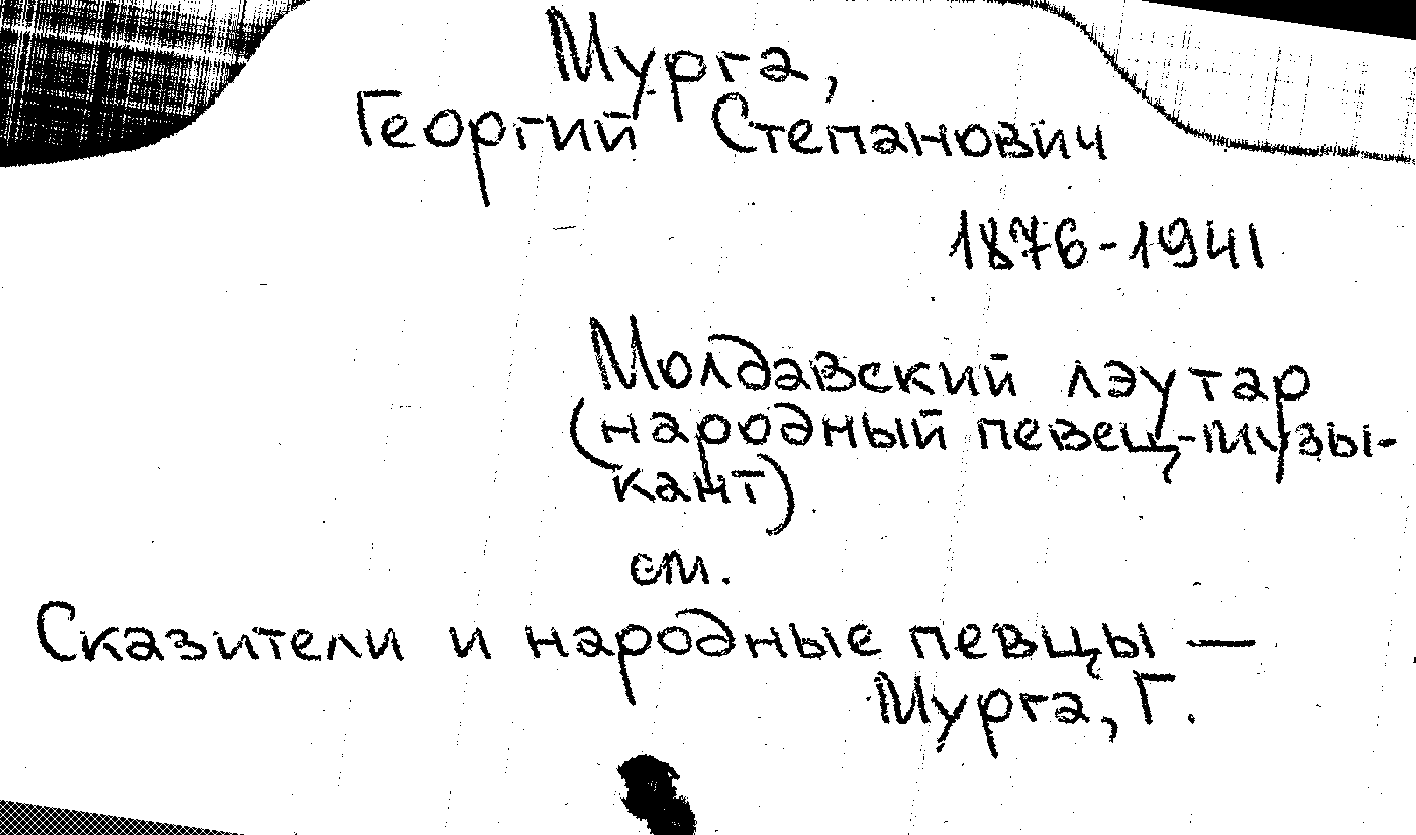 Мурга,
Георгий Степанович
1876-1941
Молдавский лэутар
(народный певец-музы-
кант)
см.
Сказители и народные певцы —
Мурга, Г.